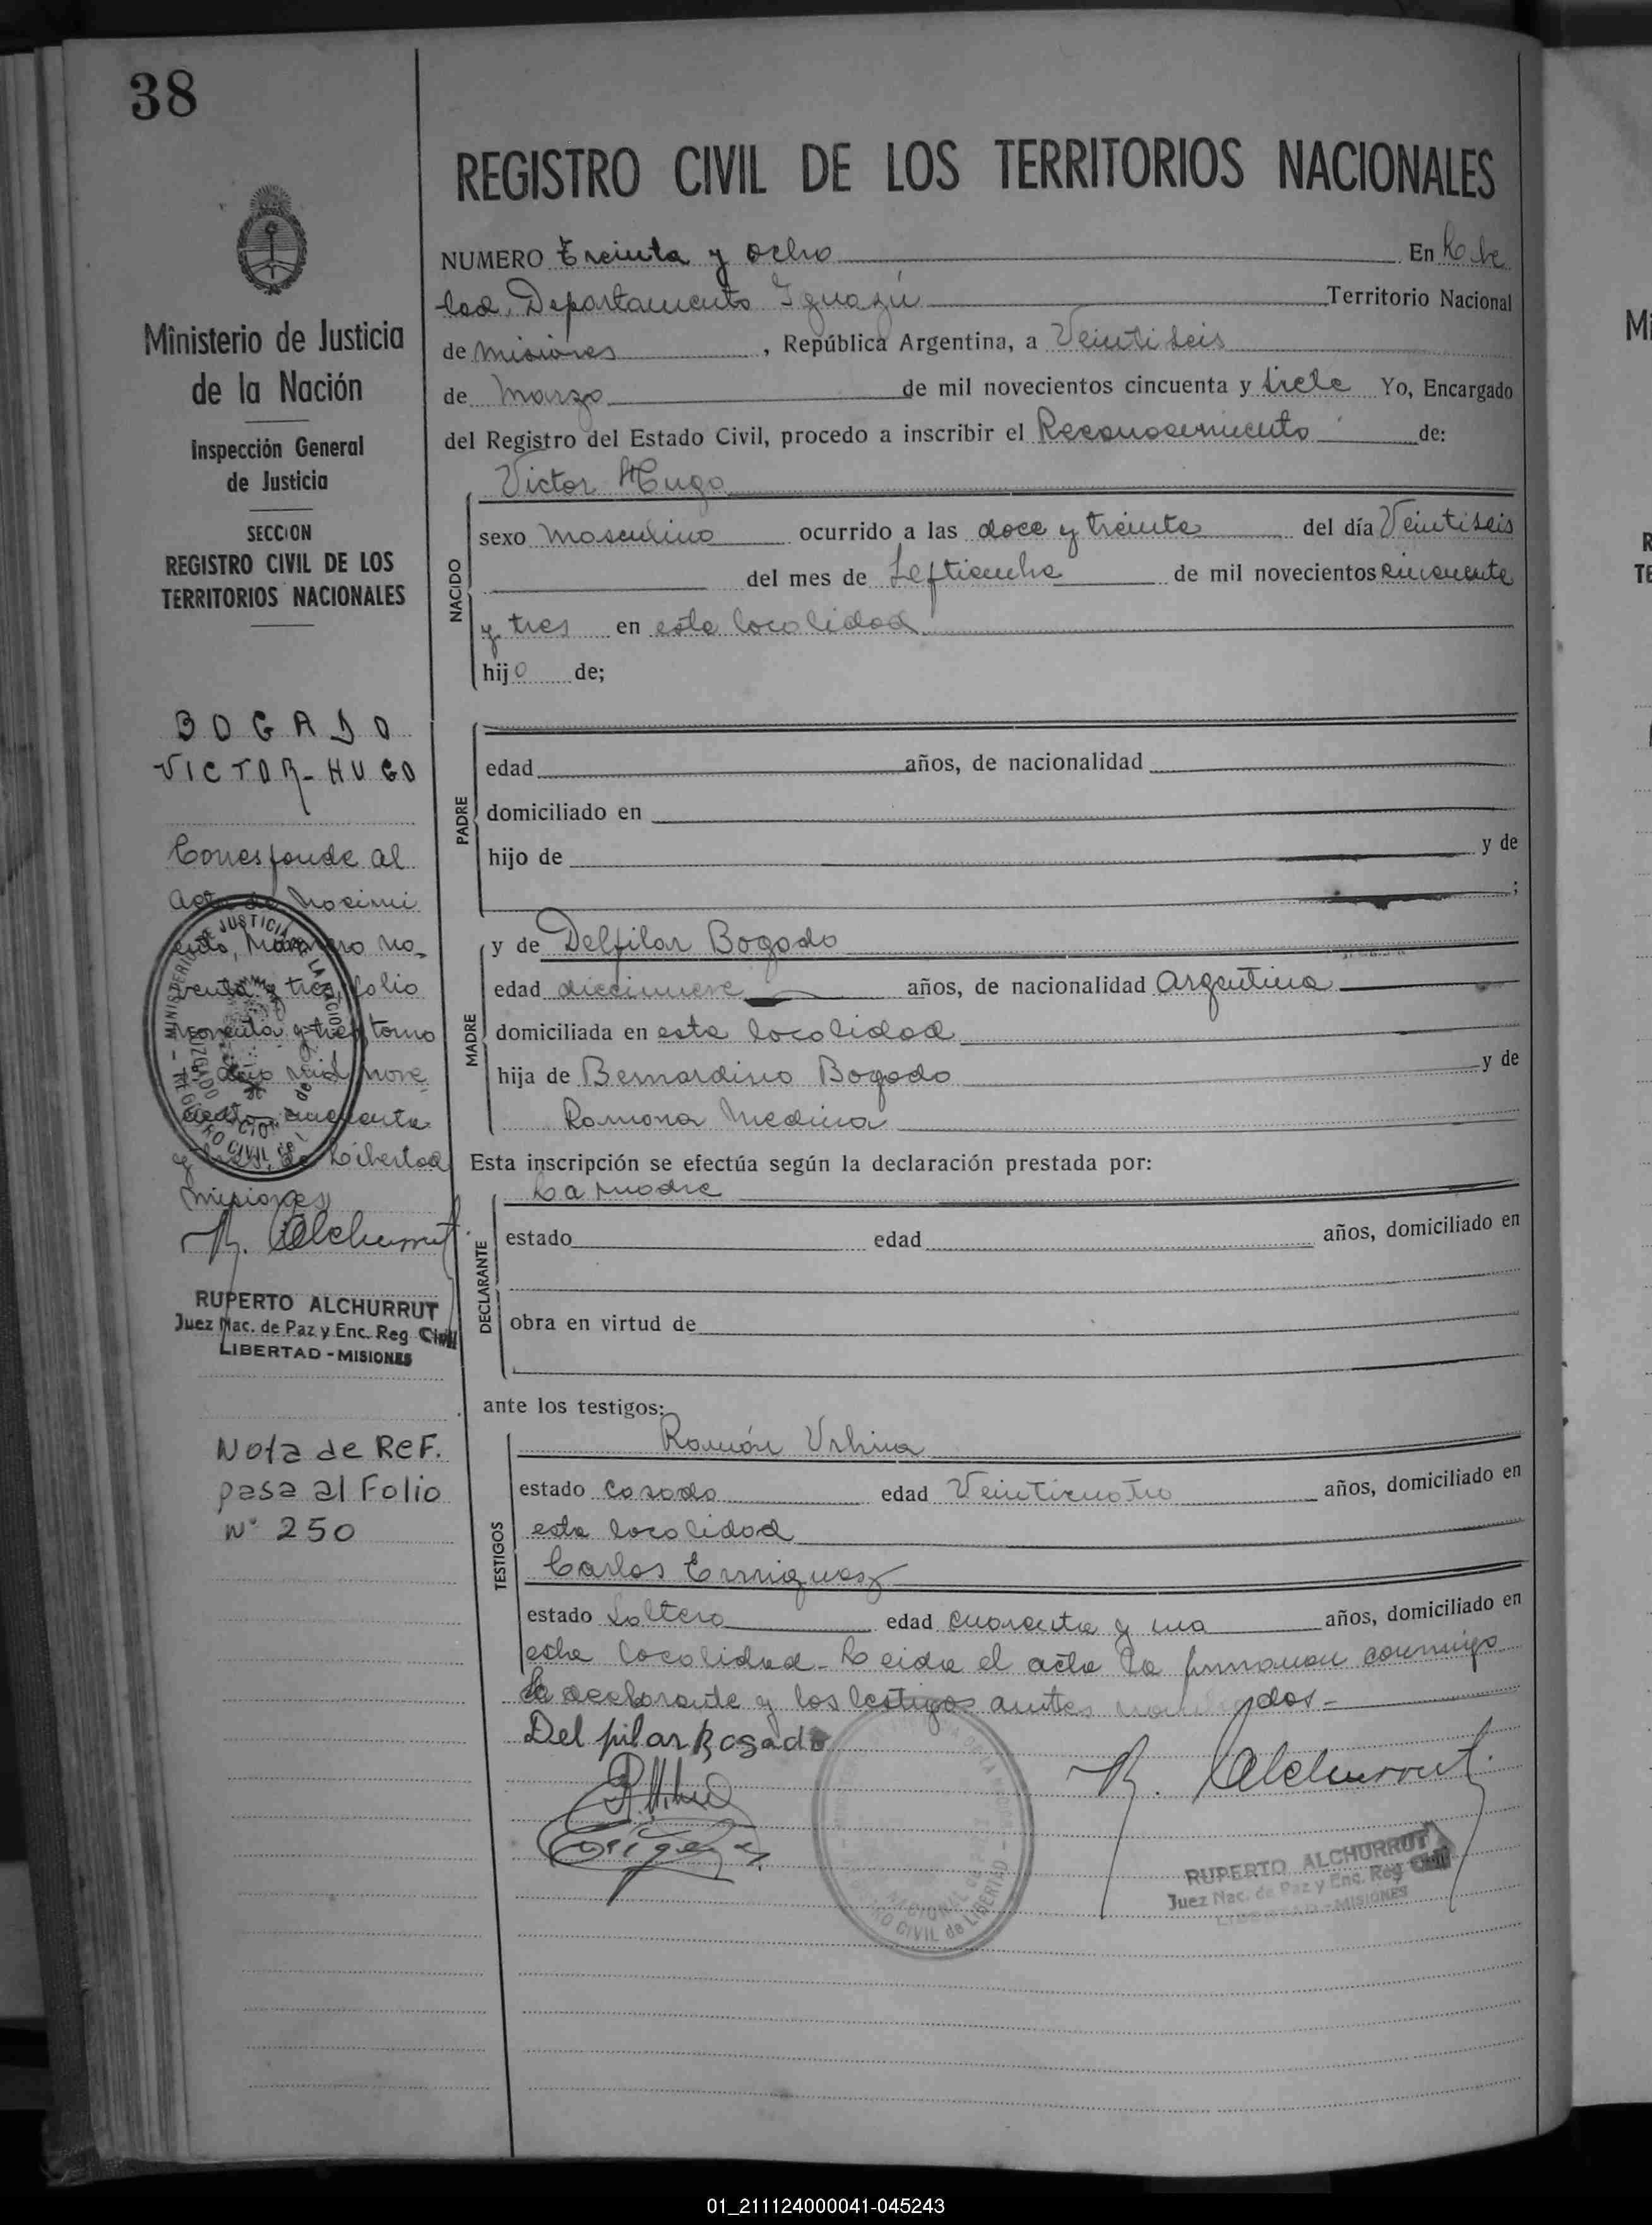 38
REGISTRO CIVIL DE LOS TERRITORIOS NACIONALES
NUMERO Treinta y ocho En
Departamento Iguazú Territorio Nacional
de Misiones, República Argentina, a Veintiseis
de Marzo de mil novecientos cincuenta y siete Yo, Encargado
del Registro del Estado Civil, procedo a inscribir el Reconocimiento de:
Victor Hugo
NACIDO
sexo masculino ocurrido a las doce y treinta del día Veintiseis
del mes de Septiembre de mil novecientos cincuenta
y tres en esta localidad
hijo de;
PADRE
edad años, de nacionalidad
domiciliado en
hijo de y de
;
MADRE
y de Delpilar Bogado
edad diecinueve años, de nacionalidad Argentina
domiciliada en esta localidad
hija de Bernardino Bogado y de
Ramona Medina
Esta inscripción se efectúa según la declaración prestada por:
La madre
DECLARANTE
estado edad años, domiciliado en
obra en virtud de
ante los testigos:
Ramón
TESTIGOS
estado Casado edad Veinticuatro años, domiciliado en
esta localidad
Carlos Enrriquez
estado Soltero edad cuarenta y una años, domiciliado en
esta localidad - Leida el acta la firmaron conmigo
la declarante y los testigos antes nombrados.-
Del pilar Bogado
R. Alchurrut
RUPERTO ALCHURRUT
Juez Nac. de Paz y Enc. Reg Civil
LIBERTAD - MISIONES
REGISTRO CIVIL de LIBERTAD
Ministerio de Justicia
de la Nación
Inspección General
de Justicia
SECCION
REGISTRO CIVIL DE LOS
TERRITORIOS NACIONALES
BOGADO
VICTOR-HUGO
Corresponde al
acta de Nacimi
ento, Número no-
venta y tres folio
noventa y tres tomo
año mil nove
cientos cincuenta
y tres, de Libertad
Misiones
R. Alchurrut
RUPERTO ALCHURRUT
Juez Nac. de Paz y Enc. Reg Civil
LIBERTAD - MISIONES
Nota de REF.
pasa al Folio
N° 250
01_211124000041-045243